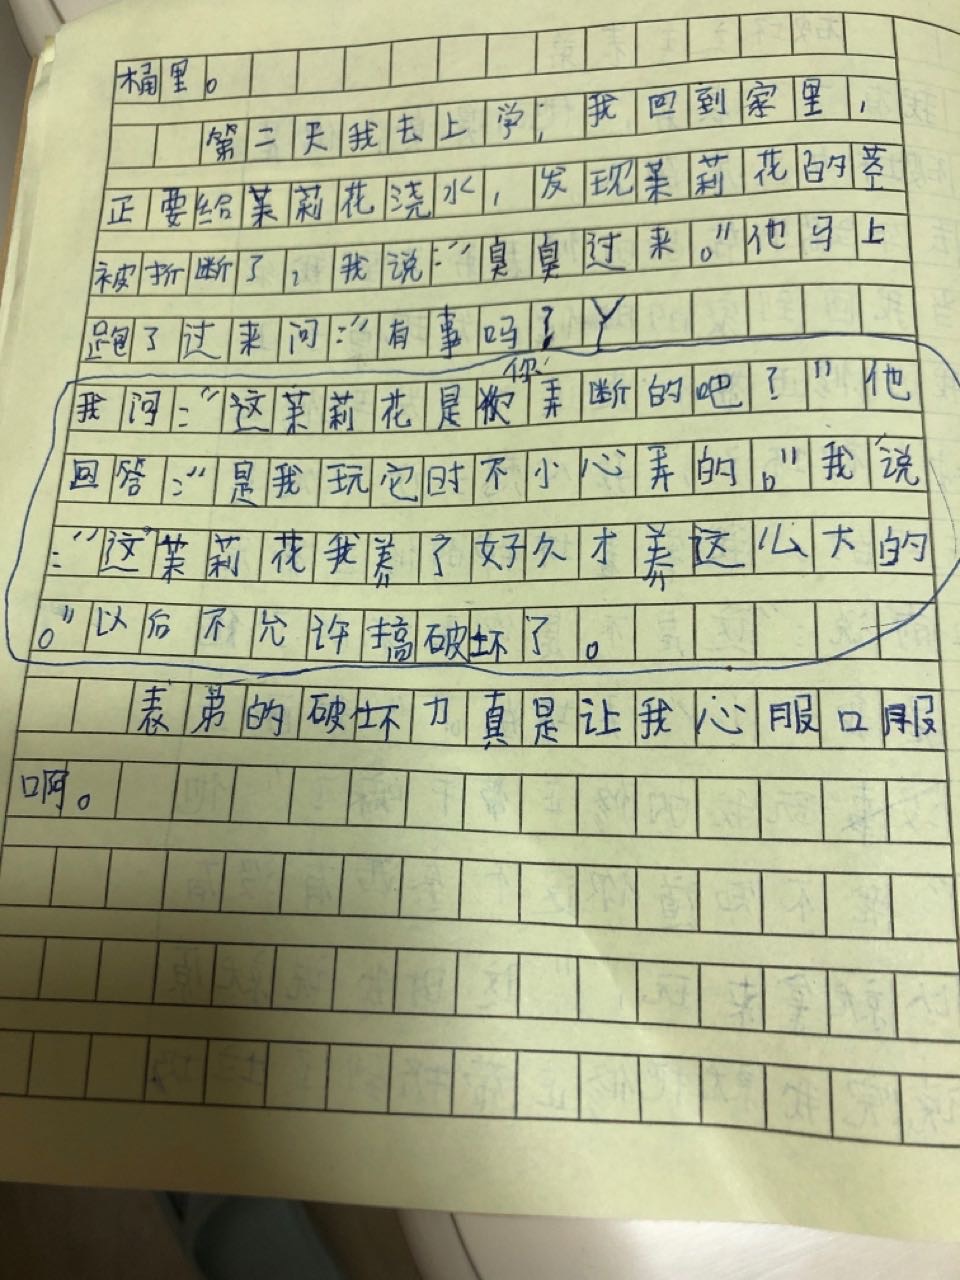 桶里。
第二天我去上学，我回到家里，
正要给茉莉花浇水，发现茉莉花的茎
被折断了，我说：“臭臭过来。”他马上
跑了过来问：“有事吗？
你
我问：“这茉莉花是你弄断的吧？”他
回答：“是我玩它时不小心弄的。”我说
：“这茉莉花我养了好久才养这么大的
。”以后不允许搞破坏了。
表弟的破坏力真是让我心服口服
啊。